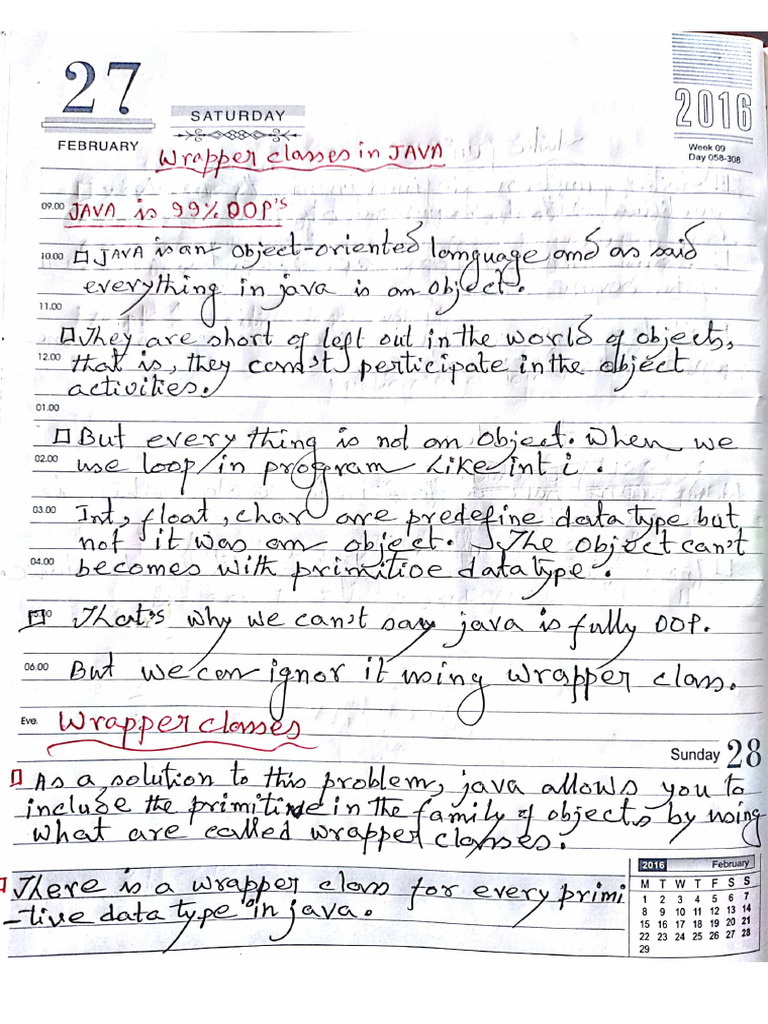 27
SATURDAY
FEBRUARY
2016
Week 09
Day 058-308
Wrapper classes in JAVA
09.00 JAVA is 99% OOP's
10.00 JAVA is an object-oriented language and as said
everything in java is an object.
11.00
They are short of left out in the world of objects,
12.00 that is, they can't participate in the object
activities.
01.00
But every thing is not an object. When we
02.00 use loop in program like int i.
03.00 Int, float, char are predefine data type but,
not it was an object. The object can't
04.00 becomes with primitive data type.
05.00 That's why we can't say java is fully OOP.
06.00 But we can ignor it using wrapper class.
Eve. Wrapper classes
Sunday 28
As a solution to this problem, java allows you to
include the primitive in the family of objects by using
what are called wrapper classes.
There is a wrapper class for every primi
-tive data type in java.
2016 February
M T W T F S S
1 2 3 4 5 6 7
8 9 10 11 12 13 14
15 16 17 18 19 20 21
22 23 24 25 26 27 28
29